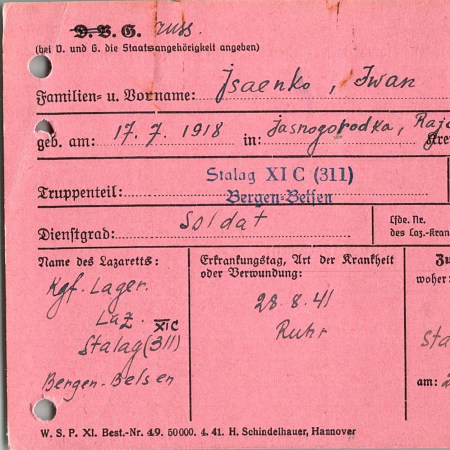 D. V. G. russ.
(bei V. und G. die Staatsangehörigkeit angeben)
Familien- u. Vorname: Jsaenko, Iwan
geb. am: 17. 7. 1918 in: Jasnogorodka,
Truppenteil: Stalag XI C (311)
Bergen-Belsen
Dienstgrad: Soldat
Lfde. Nr.
des Laz.-Kran
Name des Lazaretts:
Kgf. Lager.
Laz. XI C
Stalag (311)
Bergen-Belsen
Erkrankungstag, Art der Krankheit
oder Verwundung:
28. 8. 41
Ruhr
Zu
woher
Sta
am: 2
W. S. P. XI. Best.-Nr. 49. 50000. 4. 41. H. Schindelhauer, Hannover